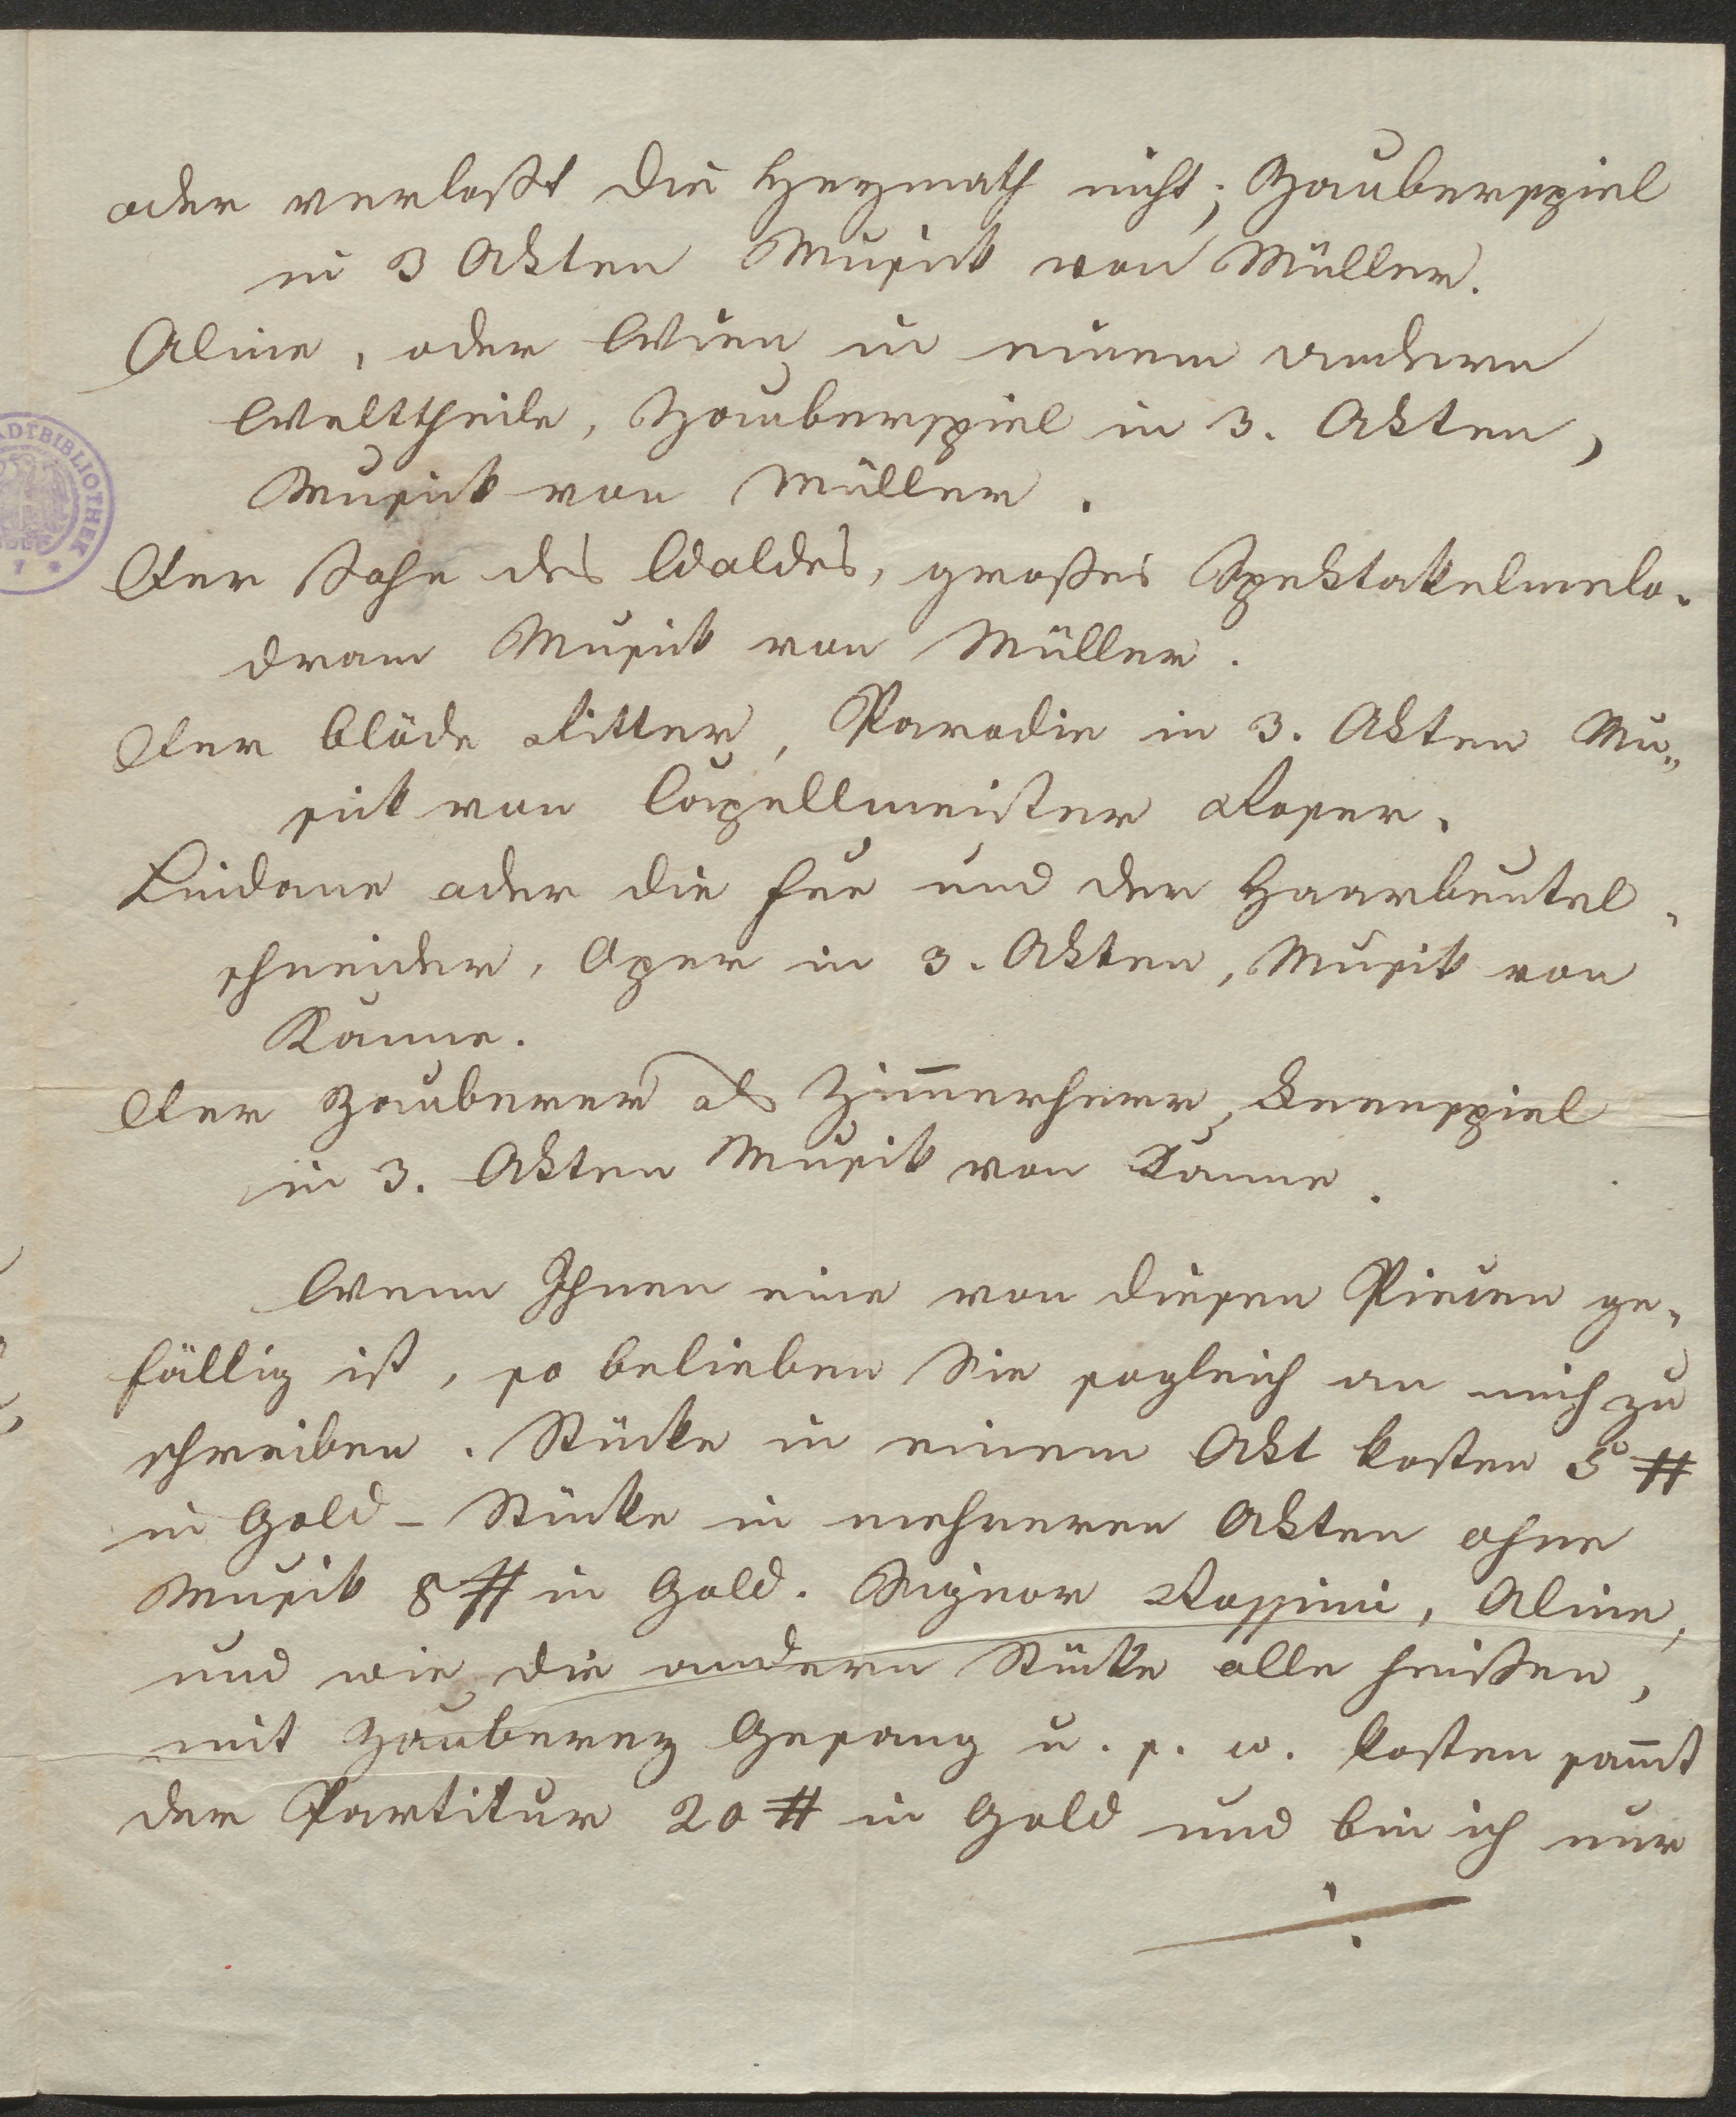 oder verlaßt die Heymath nicht; Zauberspiel
in 3 Akten Musick von Müller.
Aline, oder Wien in einem andern
Welttheile, Zauberspiel in 3. Akten,
Musick von Müller.
Der Sohn des Waldes, großes Spektakelmelo-
dram Musick von Müller.
Der blöde Ritter, Parodie in 3. Akten Mu„
sick von Capellmeister Roser.
Lindane oder die Fee und der Haarbeutel-
schneider, Oper in 3. Akten, Musik von
Kanne.
Der Zauberer als Zim̅erherr, Feenspiel
in 3. Akten Musik von Kanne.
Wenn Ihnen eine von diesen Piecen ge-
fällig ist, so belieben Sie sogleich an mich zu
schreiben. Stücke in einem Akt kosten 5 #
in Gold – Stücke in mehreren Akten ohne
Musik 8 # in Gold. Signor Rossini, Aline,
und wie die andern Stücke alle heißen,
mit Zauberey Gesang u. s. w. kosten sam̅t
der Partitur 20 # in Gold und bin ich nur
÷
ADTBIBLIOTHEK